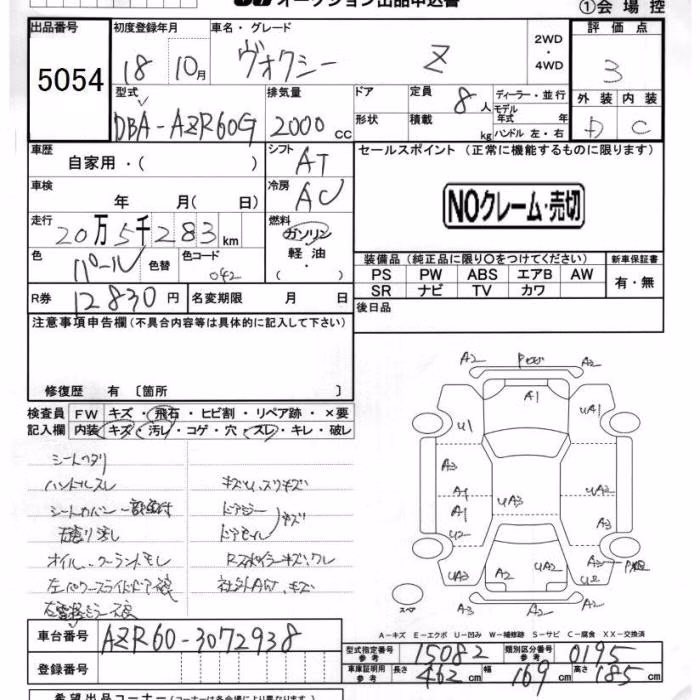 オークション出品申込書
①会場控
出品番号 初度登録年月 車名・グレード 2WD・4WD 評価点
5054 18 10月 ヴォクシー Z 3
型式 排気量 ドア 定員 8人 ディーラー・並行 外装 内装
モデル年式 年
DBA-AZR60G 2000cc 形状 積載 kg ハンドル 左・右 D C
車歴 シフト セールスポイント (正常に機能するものに限ります)
自家用・( ) AT
車検 冷房
年 月( 日) AC NOクレーム・売切
走行 燃料
20万5千283km ガソリン
色 色替 色コード 軽油 装備品 (純正品に限り○をつけてください) 新車保証書
パール 042 ( ) PS PW ABS エアB AW 有・無
SR ナビ TV カワ
R券 12830円 名変期限 月 日 後日品
注意事項申告欄(不具合内容等は具体的に記入して下さい)
修復歴 有 〔箇所 〕
検査員 FW キズ・飛石・ヒビ割・リペア跡・×要
記入欄 内装 キズ・汚レ・コゲ・穴・スレ・キレ・破レ
シートヘタリ
ハンドルスレ
シートカバー
オイル、クーラントモレ
左パワースライドドア
A2 A2
A1
U1 UA1
A3
A1 UA3 UA3
A1 A3
U2
UA3 A2 A2 UA3
A3 A2 A2
スペア
A-キズ E-エクボ U-凹み W-補修跡 S-サビ C-腐食 XX-交換済
車台番号 AZR60-3072938
登録番号
型式指定番号 参考 15082 類別区分番号 参考 0195
車庫証明用 参考 長さ 462cm 幅 169cm 高さ 185cm
希望出品コーナー